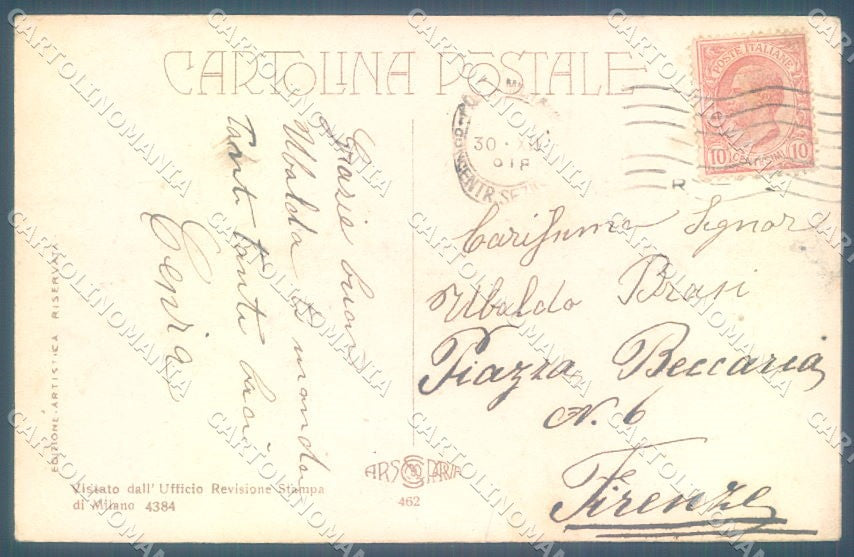 CARTOLINA POSTALE
POSTE ITALIANE
10 CENTESIMI 10
30 · XII
918
CENTR. SEZ
Grazie buon
Ubaldo ti manda
Tanti tanti baci
Cenzia
Carissimo Signor
Ubaldo Brasi
Piazza Beccaria
N. 6
Firenze
EDIZIONE ARTISTICA RISERVATA
Vistato dall' Ufficio Revisione Stampa
di Milano 4384
ARS PARVA
462
CARTOLINOMANIA